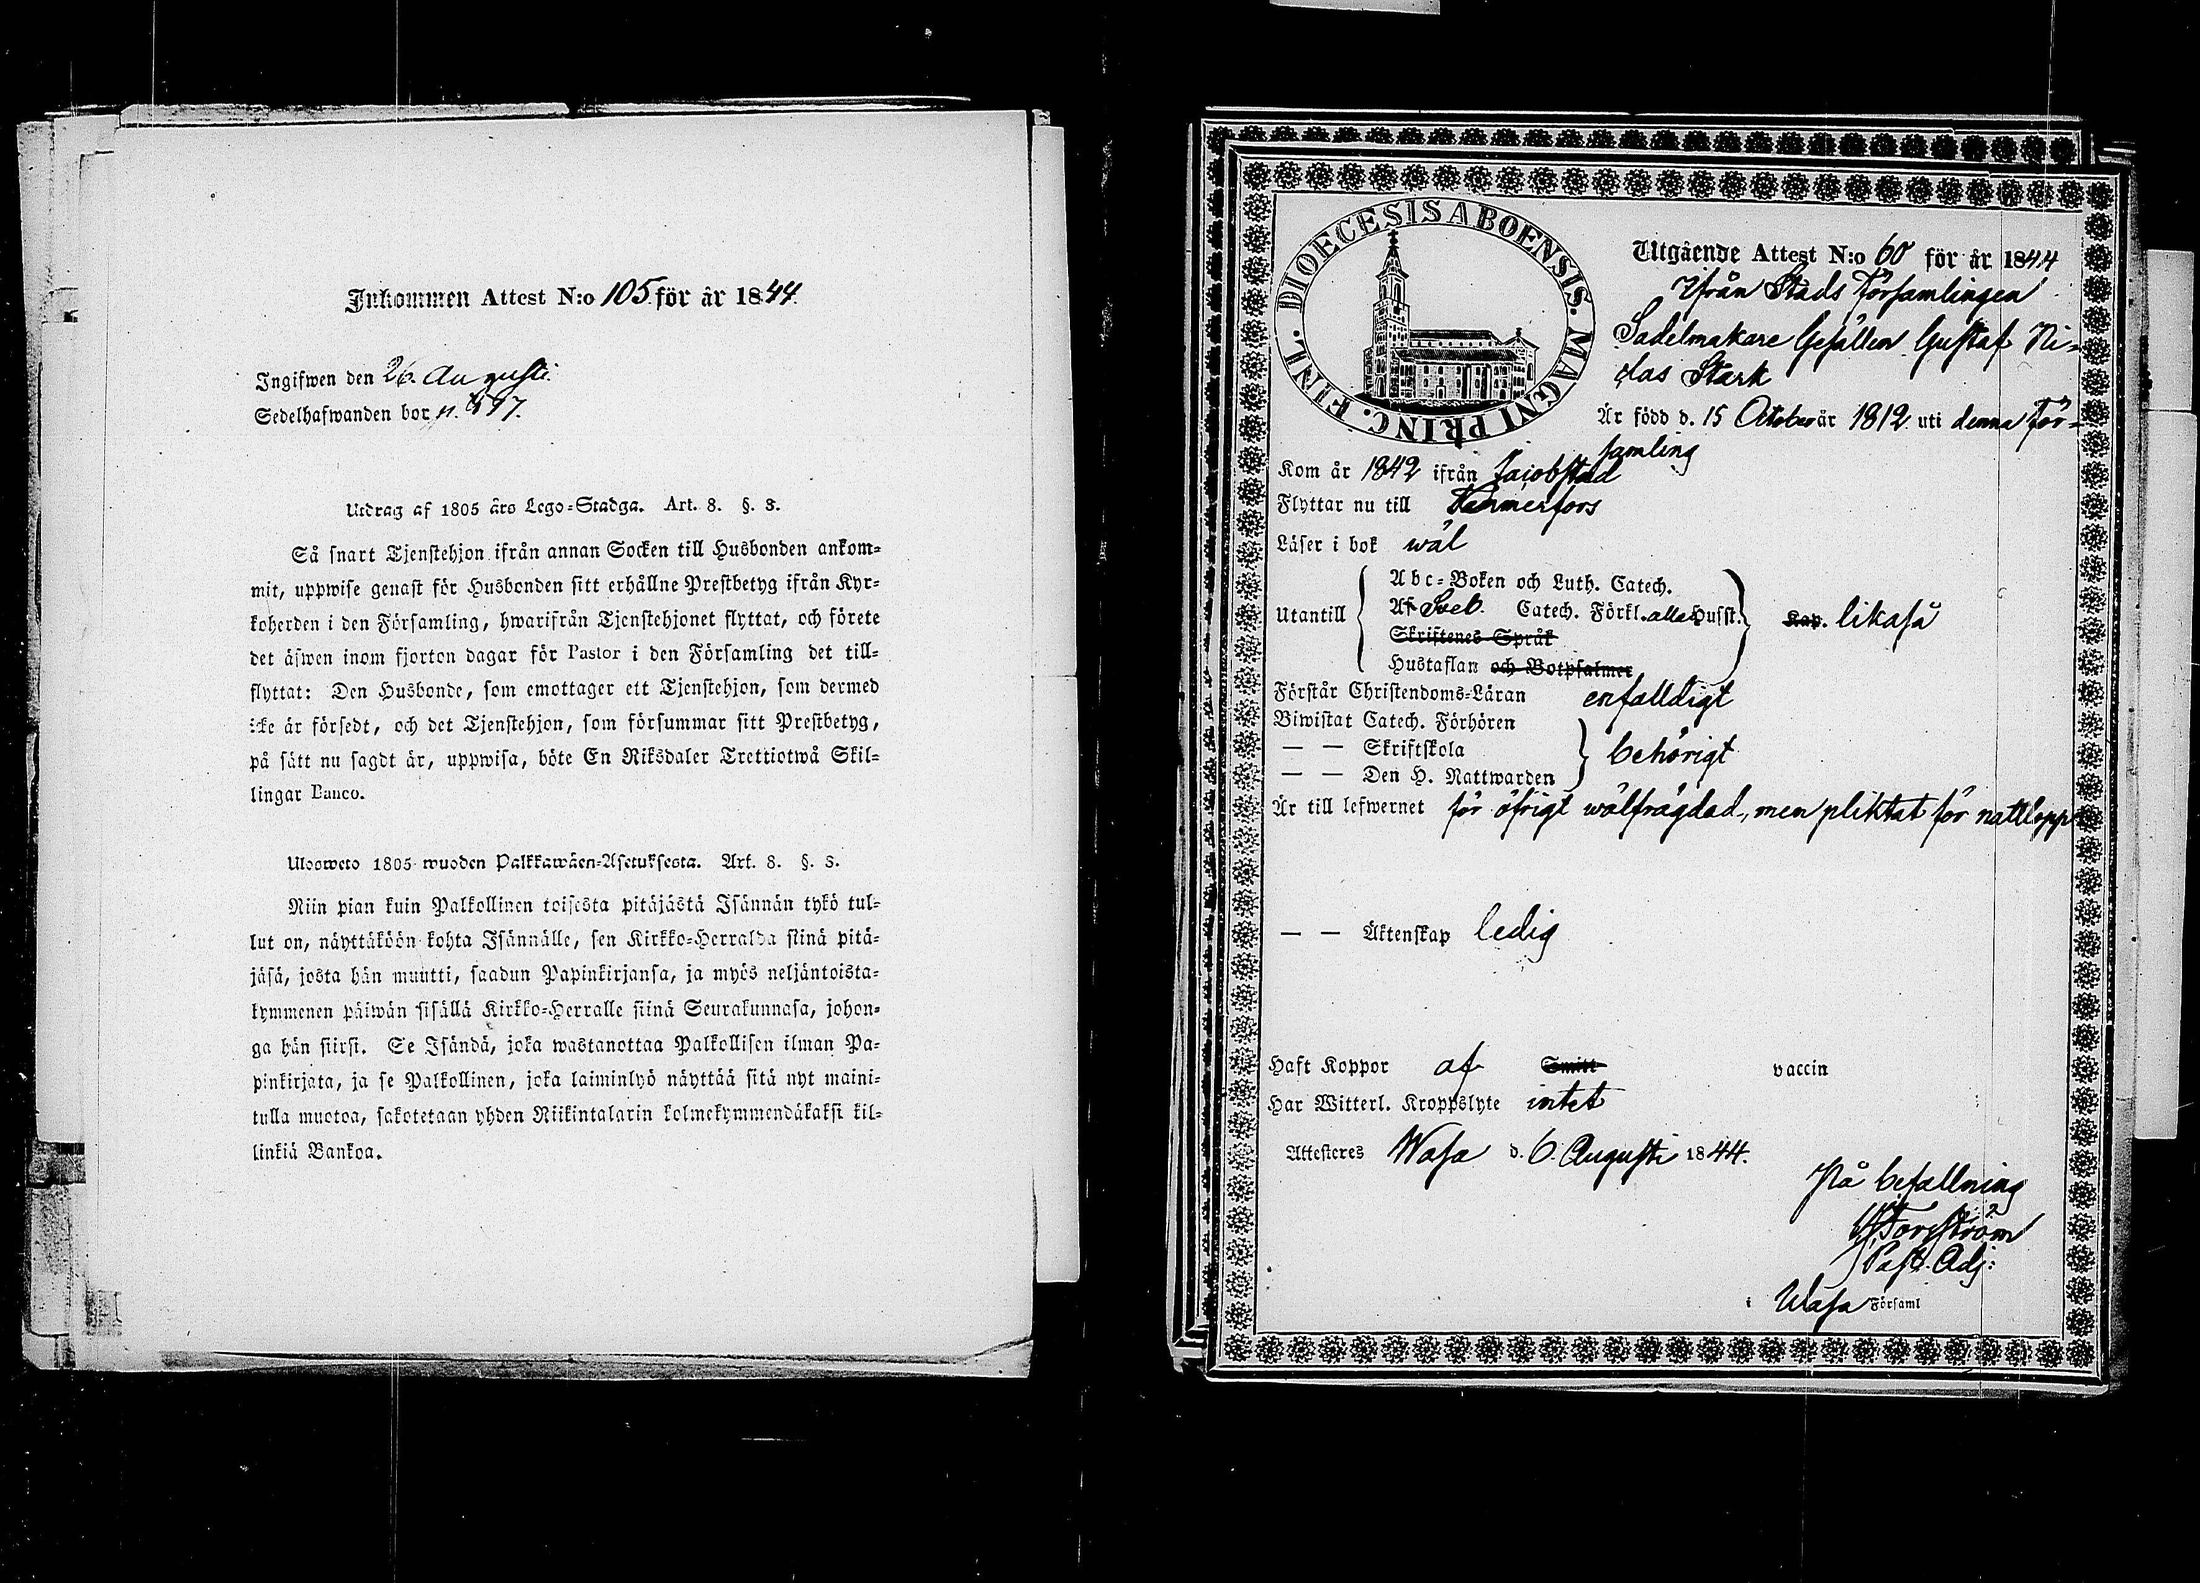 Inkommen Attest N:o 105 för år 1844
Ingifwen den 26. Augusti.
Sedelhafwanden bor n.
Utdrag af 1805 års Lego-Stadga. Art. 8. §. 3.
Så snart Tjenstehjon ifrån annan Socken till Husbonden ankom-
mit, uppwise genast för Husbonden sitt erhållne Prestbetyg ifrån Kyr-
koherden i den Församling, hwarifrån Tjenstehjonet flyttat, och förete
det äfwen inom fjorton dagar för Pastor i den Församling det till-
flyttat: Den Husbonde, som emottager ett Tjenstehjon, som dermed
icke är försedt, och det Tjenstehjon, som försummar sitt Prestbetyg,
på sätt nu sagdt är, uppwisa, böte En Riksdaler Trettiotwå Skil-
lingar Banco.
Ulosweto 1805 wuoden Palkkawäen-Asetuksesta. Art. 8. §. 3.
Niin pian kuin Palkollinen toisesta pitäjästä Isännän tykö tul-
lut on, näyttäköön kohta Isännälle, sen Kirkko-Herralda siinä pitä-
jäsä, josta hän muutti, saadun Papinkirjansa, ja myös neljäntoista-
kymmenen päiwän sisällä Kirkko-Herralle siinä Seurakunnasa, johon-
ga hän siirsi. Se Isändä, joka wastanottaa Palkollisen ilman Pa-
pinkirjata, ja se Palkollinen, joka laiminlyö näyttää sitä nyt maini-
tulla muotoa, sakotetaan yhden Riikintalarin kolmekymmendäkaksi kil-
linkiä Bankoa.
DIOECESIS ABOENSIS. MAGNI PRINC. FINL.
Utgående Attest N:o 60 för år 1844
Ifrån Stads Församlingen
Sadelmakare Gesällen Gustaf Ni-
clas Stark
Är född d. 15 October år 1812 uti denna För-
samling
Kom år 1842 ifrån Jacobstad
Flyttar nu till Tammerfors
Läser i bok wäl
Utantill
Abc-Boken och Luth. Catech.
Af Sveb. Catech. Förkl. alla Husst.
Skriftenes Språk
Hustaflan och Botpsalmer
Kap. likaså
Förstår Christendoms-Läran enfalldigt
Biwistat Catech. Förhören
— — Skriftskola
— — Den H. Nattwarden
behörigt
Är till lefwernet för öfrigt wälfrägdad, men pliktat för nattlopp
— — Äktenskap ledig
Haft Koppor af Smitt vaccin
Har Witterl. Kroppslyte intet
Attesteres Wasa d. 6. Augusti 1844.
På befallning
Torsström
Past. Adj:
i Wasa Församl